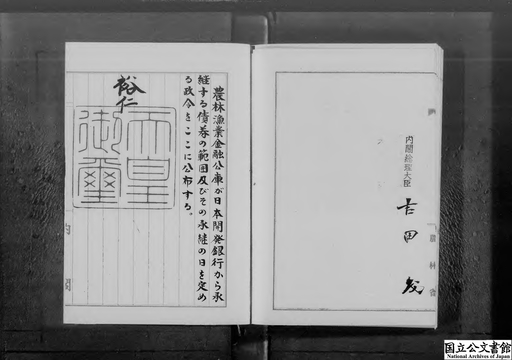 農林漁業金融公庫が日本開発銀行から承
継する債券の範囲及びその承継の日を定め
る政令をここに公布する。
裕仁
天皇
御璽
内閣総理大臣
吉田茂
国立公文書館
National Archives of Japan